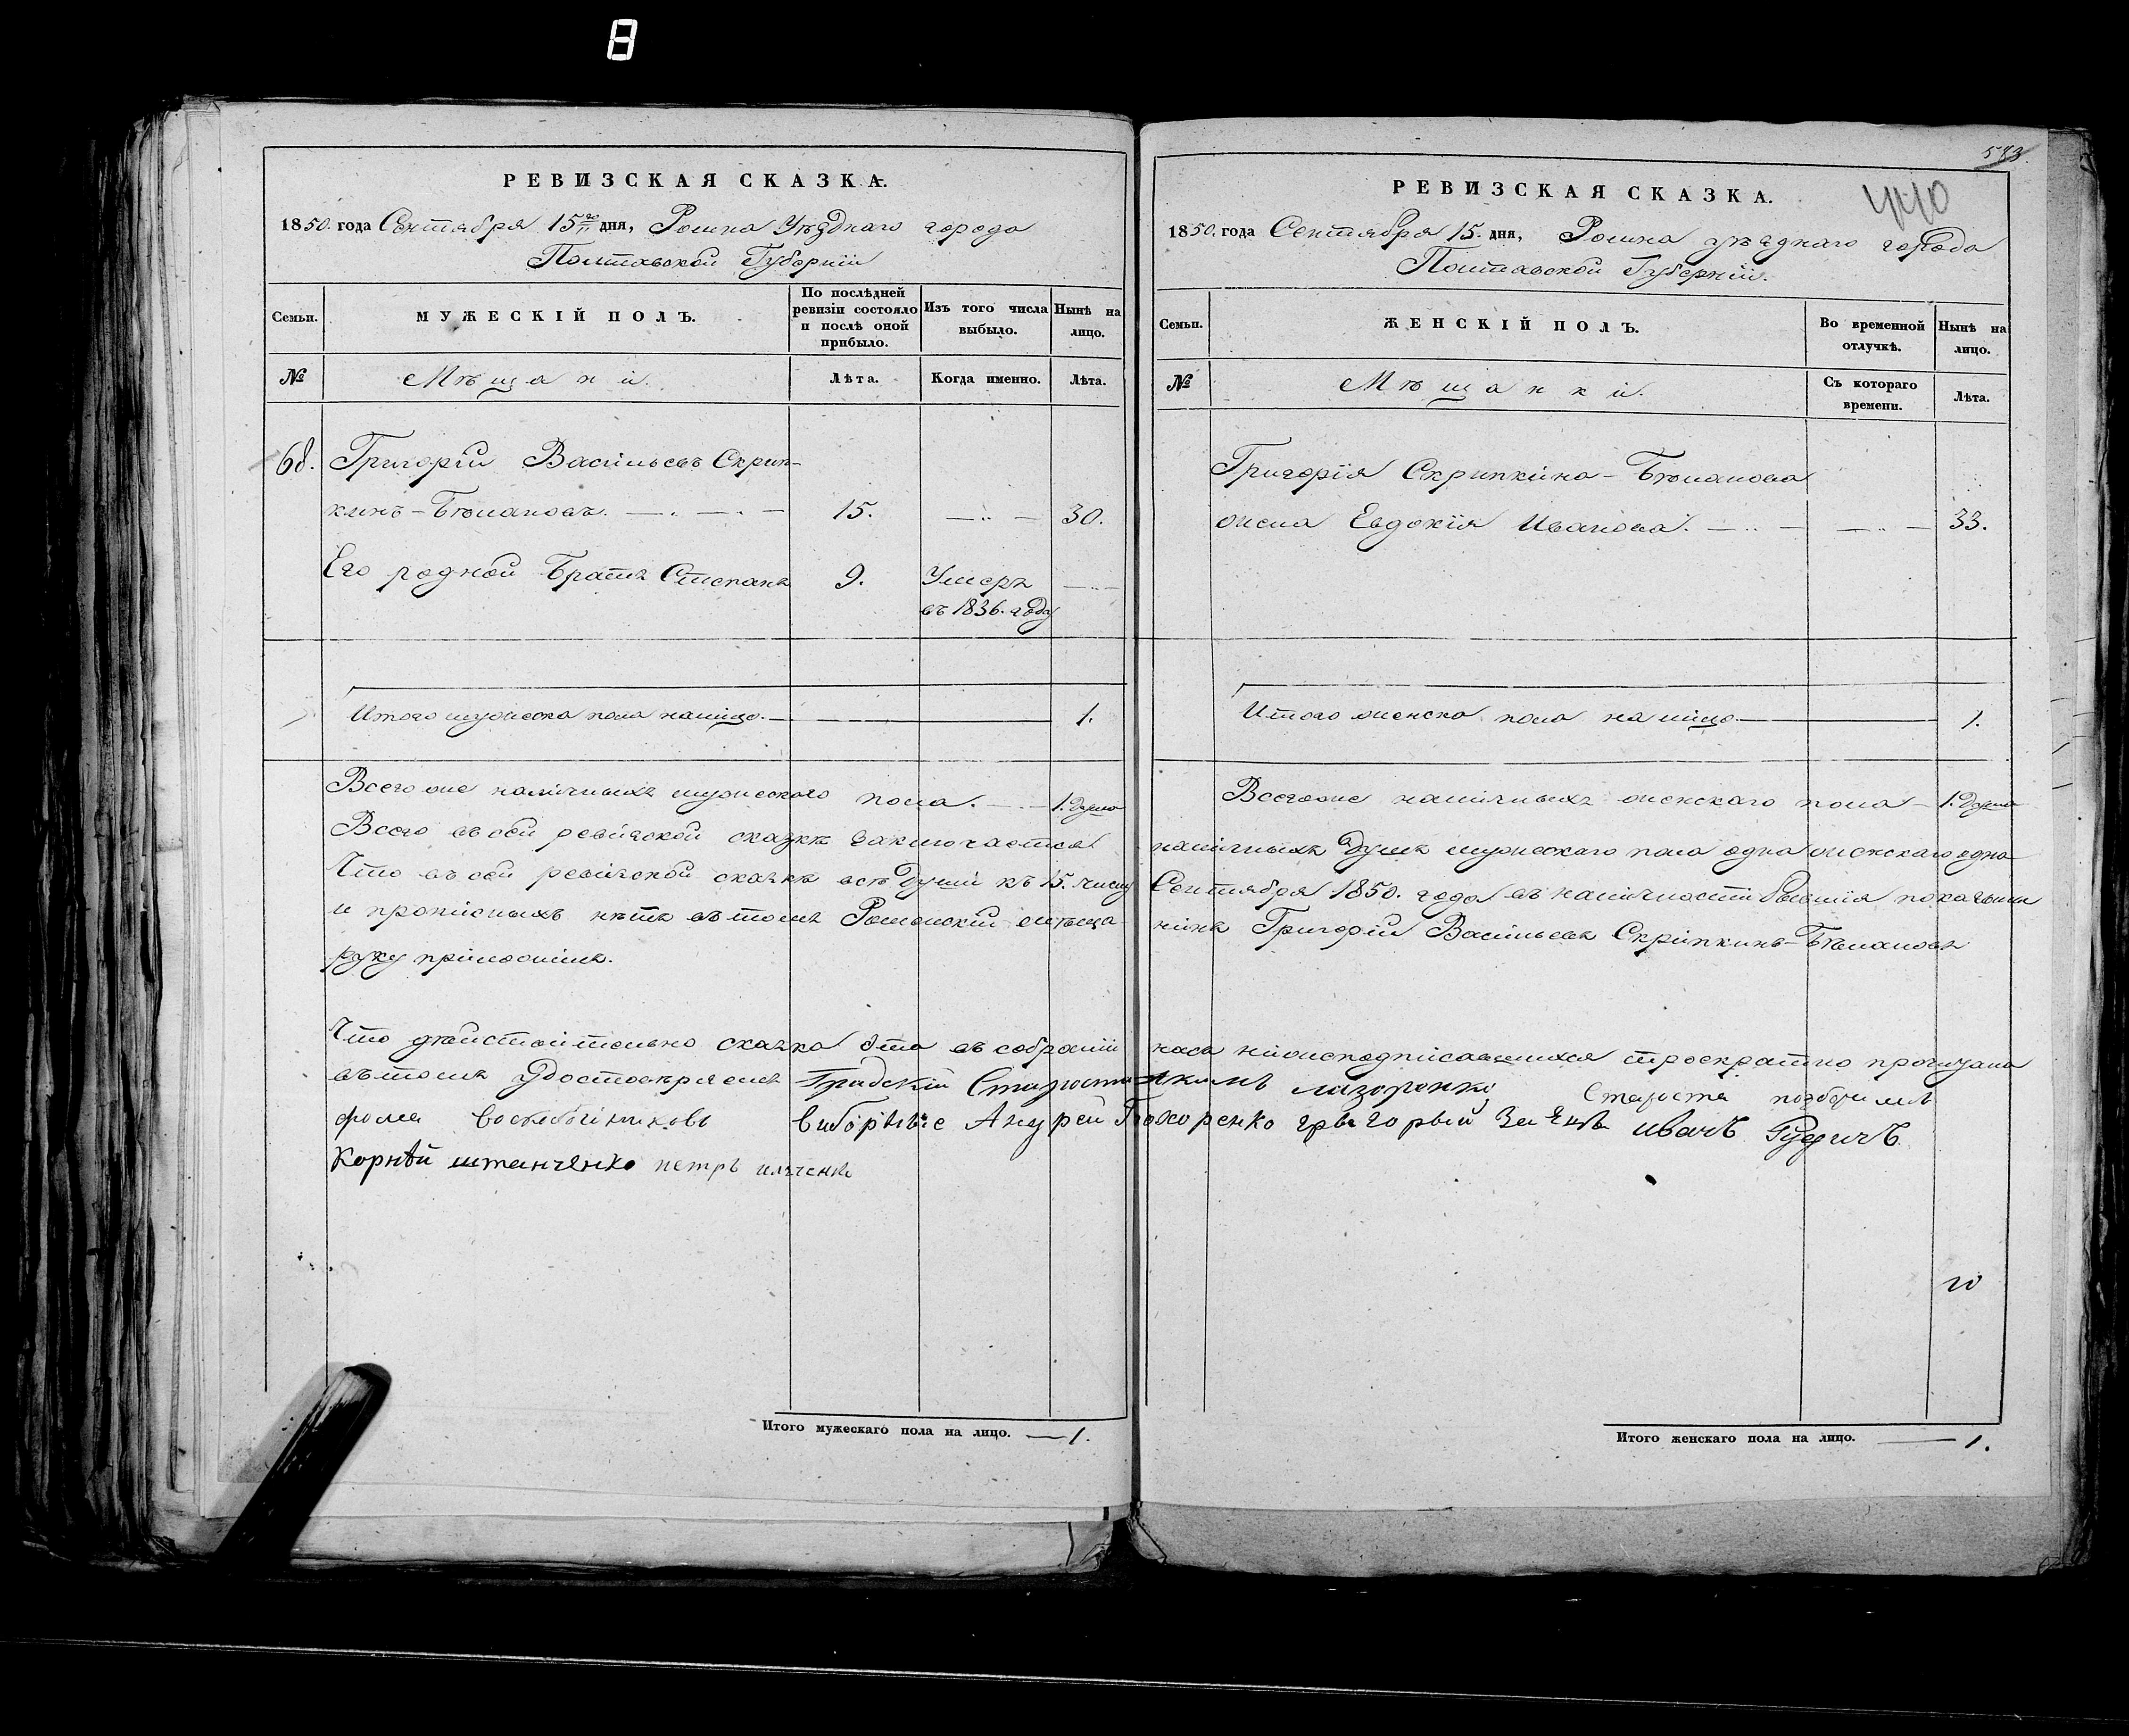 8
РЕВИЗСКАЯ СКАЗКА.
1850. года Сентября 15го дня, Ромна Уѣзднаго города
Полтавской Губерніи
Семьи.
МУЖЕСКІЙ ПОЛЪ.
По послѣдней ревизіи состояло и послѣ оной прибыло.
Изъ того числа выбыло.
Нынѣ на лицо.
№
Мѣщани.
Лѣта.
Когда именно.
Лѣта.
68. Григорій Васильевъ Скрип-
кинъ-Бѣлановъ. 15. 30.
Его родной Братъ Степанъ 9. Умеръ
въ 1836. году
Итого мужеска пола налицо. 1.
Всего же наличныхъ мужескаго пола. 1. Душа
Всего въ сей ревизской сказкѣ заключается
Что въ сей ревизской сказкѣ всѣ Души къ 15. числу
и прописныхъ нѣтъ въ томъ Роменскій мѣща-
руку приложилъ.
Что дѣйствительно сказка эта въ собраніи
въ томъ удостовѣряемъ Градскій Староста
фома
виборные Андрей
Корнѣй штанченко петръ
Итого мужескаго пола на лицо. 1.
583
440
РЕВИЗСКАЯ СКАЗКА.
1850. года Сентября 15. дня, Ромна уѣзднаго города
Полтавской Губерніи.
Семьи.
ЖЕНСКІЙ ПОЛЪ.
Во временной отлучкѣ.
Нынѣ на лицо.
№
Мѣщанки.
Съ котораго времени.
Лѣта.
Григорія Скрипкина-Бѣланова
жена Евдокія Иванова. 33.
Итого женска пола на лицо. 1.
Всего же наличныхъ женскаго пола 1. Душа
наличныхъ Душъ мужескаго пола одна женскаго одна
Сентября 1850. года въ наличности бывшія показаны
нинъ Григорій Васильевъ Скрипкинъ-Бѣлановъ
насъ нижеподписавшихся троекратно прочтана
Староста
грыгорый Заецъ иванъ Рудичъ
Итого женскаго пола на лицо. 1.